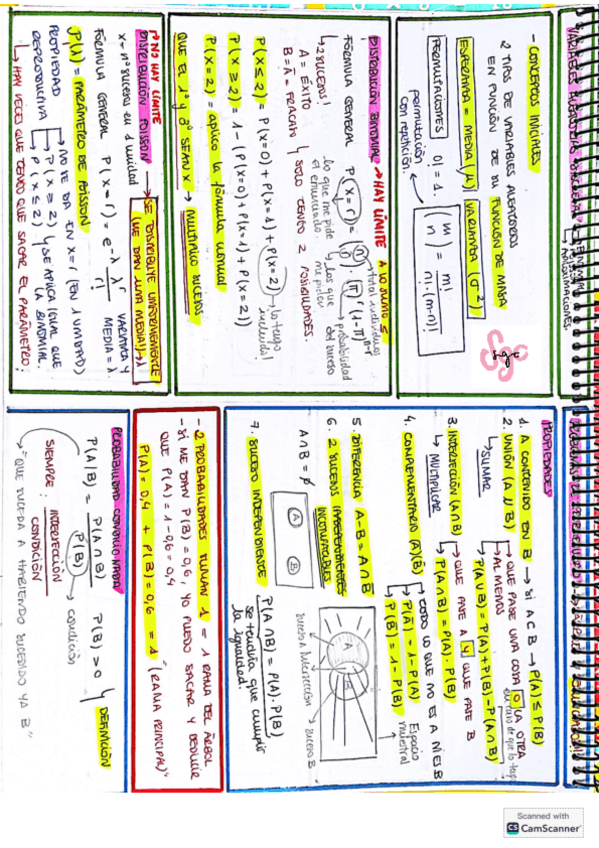 VARIABLES ALEATORIAS DISCRETAS
APROXIMACIONES.
- CONCEPTOS INICIALES
2 TIPOS DE VARIABLES ALEATORIAS
EN FUNCIÓN DE SU FUNCIÓN DE MASA
ESPERANZA = MEDIA (μ) VARIANZA (σ²)
PERMUTACIONES 0! = 1.
permutación
con repetición.
(m n) = m! / n!·(m-n)!
DISTRIBUCIÓN BINOMIAL → HAY LÍMITE A LO SUMO ≤
FÓRMULA GENERAL P(X=r) = (n r) · (π)^r (1-π)^n-r
total individuos
lo que me pide
el enunciado.
los que
me piden
probabilidad
del suceso
↳ 2 SUCESOS!
A = ÉXITO
B = Ā = FRACASO
SOLO TENGO 2 POSIBILIDADES.
P(X≤2) = P(X=0) + P(X=1) + P(X=2) → lo tengo
incluido!
P(X≥2) = 1 - (P(X=0) + P(X=1) + P(X=2))
P(X=2) = aplico la fórmula normal
QUE EL 1º y 3º SEAN X → MULTIPLICO SUCESOS
→ NO HAY LÍMITE
DISTRIBUCIÓN POISSON → SE DISTRIBUYE UNIFORMEMENTE
(ME DAN UNA MEDIA!) → λ
X = nº SUCESOS EN 1 UNIDAD
FÓRMULA GENERAL P(X=r) = e^-λ λ^r / r!
VARIANZA Y
MEDIA = λ
P(λ) = PARÁMETRO DE POISSON
PROPIEDAD
REPRODUCTIVA
→ NO ME DA EN X=r (EN 1 UNIDAD)
→ P(X≥2)
→ P(X≤2)
SE APLICA IGUAL QUE
LA BINOMIAL.
↳ HAY VECES QUE TENGO QUE SACAR EL PARÁMETRO:
PROPIEDADES
1. A CONTENIDO EN B → SI A ⊂ B → P(A) ≤ P(B)
2. UNIÓN (A ∪ B) → QUE PASE UNA COSA O LA OTRA
→ AL MENOS
↳ SUMAR
→ P(A∪B) = P(A) + P(B) - P(A∩B)
3. INTERSECCIÓN (A∩B) → QUE PASE A Y QUE PASE B
↳ MULTIPLICAR → P(A∩B) = P(A) · P(B)
4. COMPLEMENTARIO (Ā)(B̄) → TODO LO QUE NO ES A NI ES B
→ P(Ā) = 1 - P(A)
→ P(B̄) = 1 - P(B)
Espacio
muestral
5. DIFERENCIA A-B = A∩B̄
6. 2 SUCESOS INDEPENDIENTES
INCOMPATIBLES
A∩B = ∅
A
B
A
B
suceso A
Intersección
suceso B
7. SUCESO INDEPENDIENTE P(A∩B) = P(A) · P(B)
se tendría que cumplir
la igualdad!
- 2 PROBABILIDADES SUMAN 1 = 1 RAMA DEL ÁRBOL
- SI ME DAN P(B) = 0,6, YO PUEDO SACAR Y DEDUCIR
QUE P(A) = 1 - 0,6 = 0,4
P(A) = 0,4 + P(B) = 0,6 = 1 "(RAMA PRINCIPAL)"
PROBABILIDAD CONDICIONADA
P(A/B) = P(A∩B) / P(B) P(B) > 0 DEFINICIÓN
condición
SIEMPRE: INTERSECCIÓN / CONDICIÓN
→ "QUE SUCEDA A HABIENDO SUCEDIDO YA B"
Scanned with
CS CamScanner